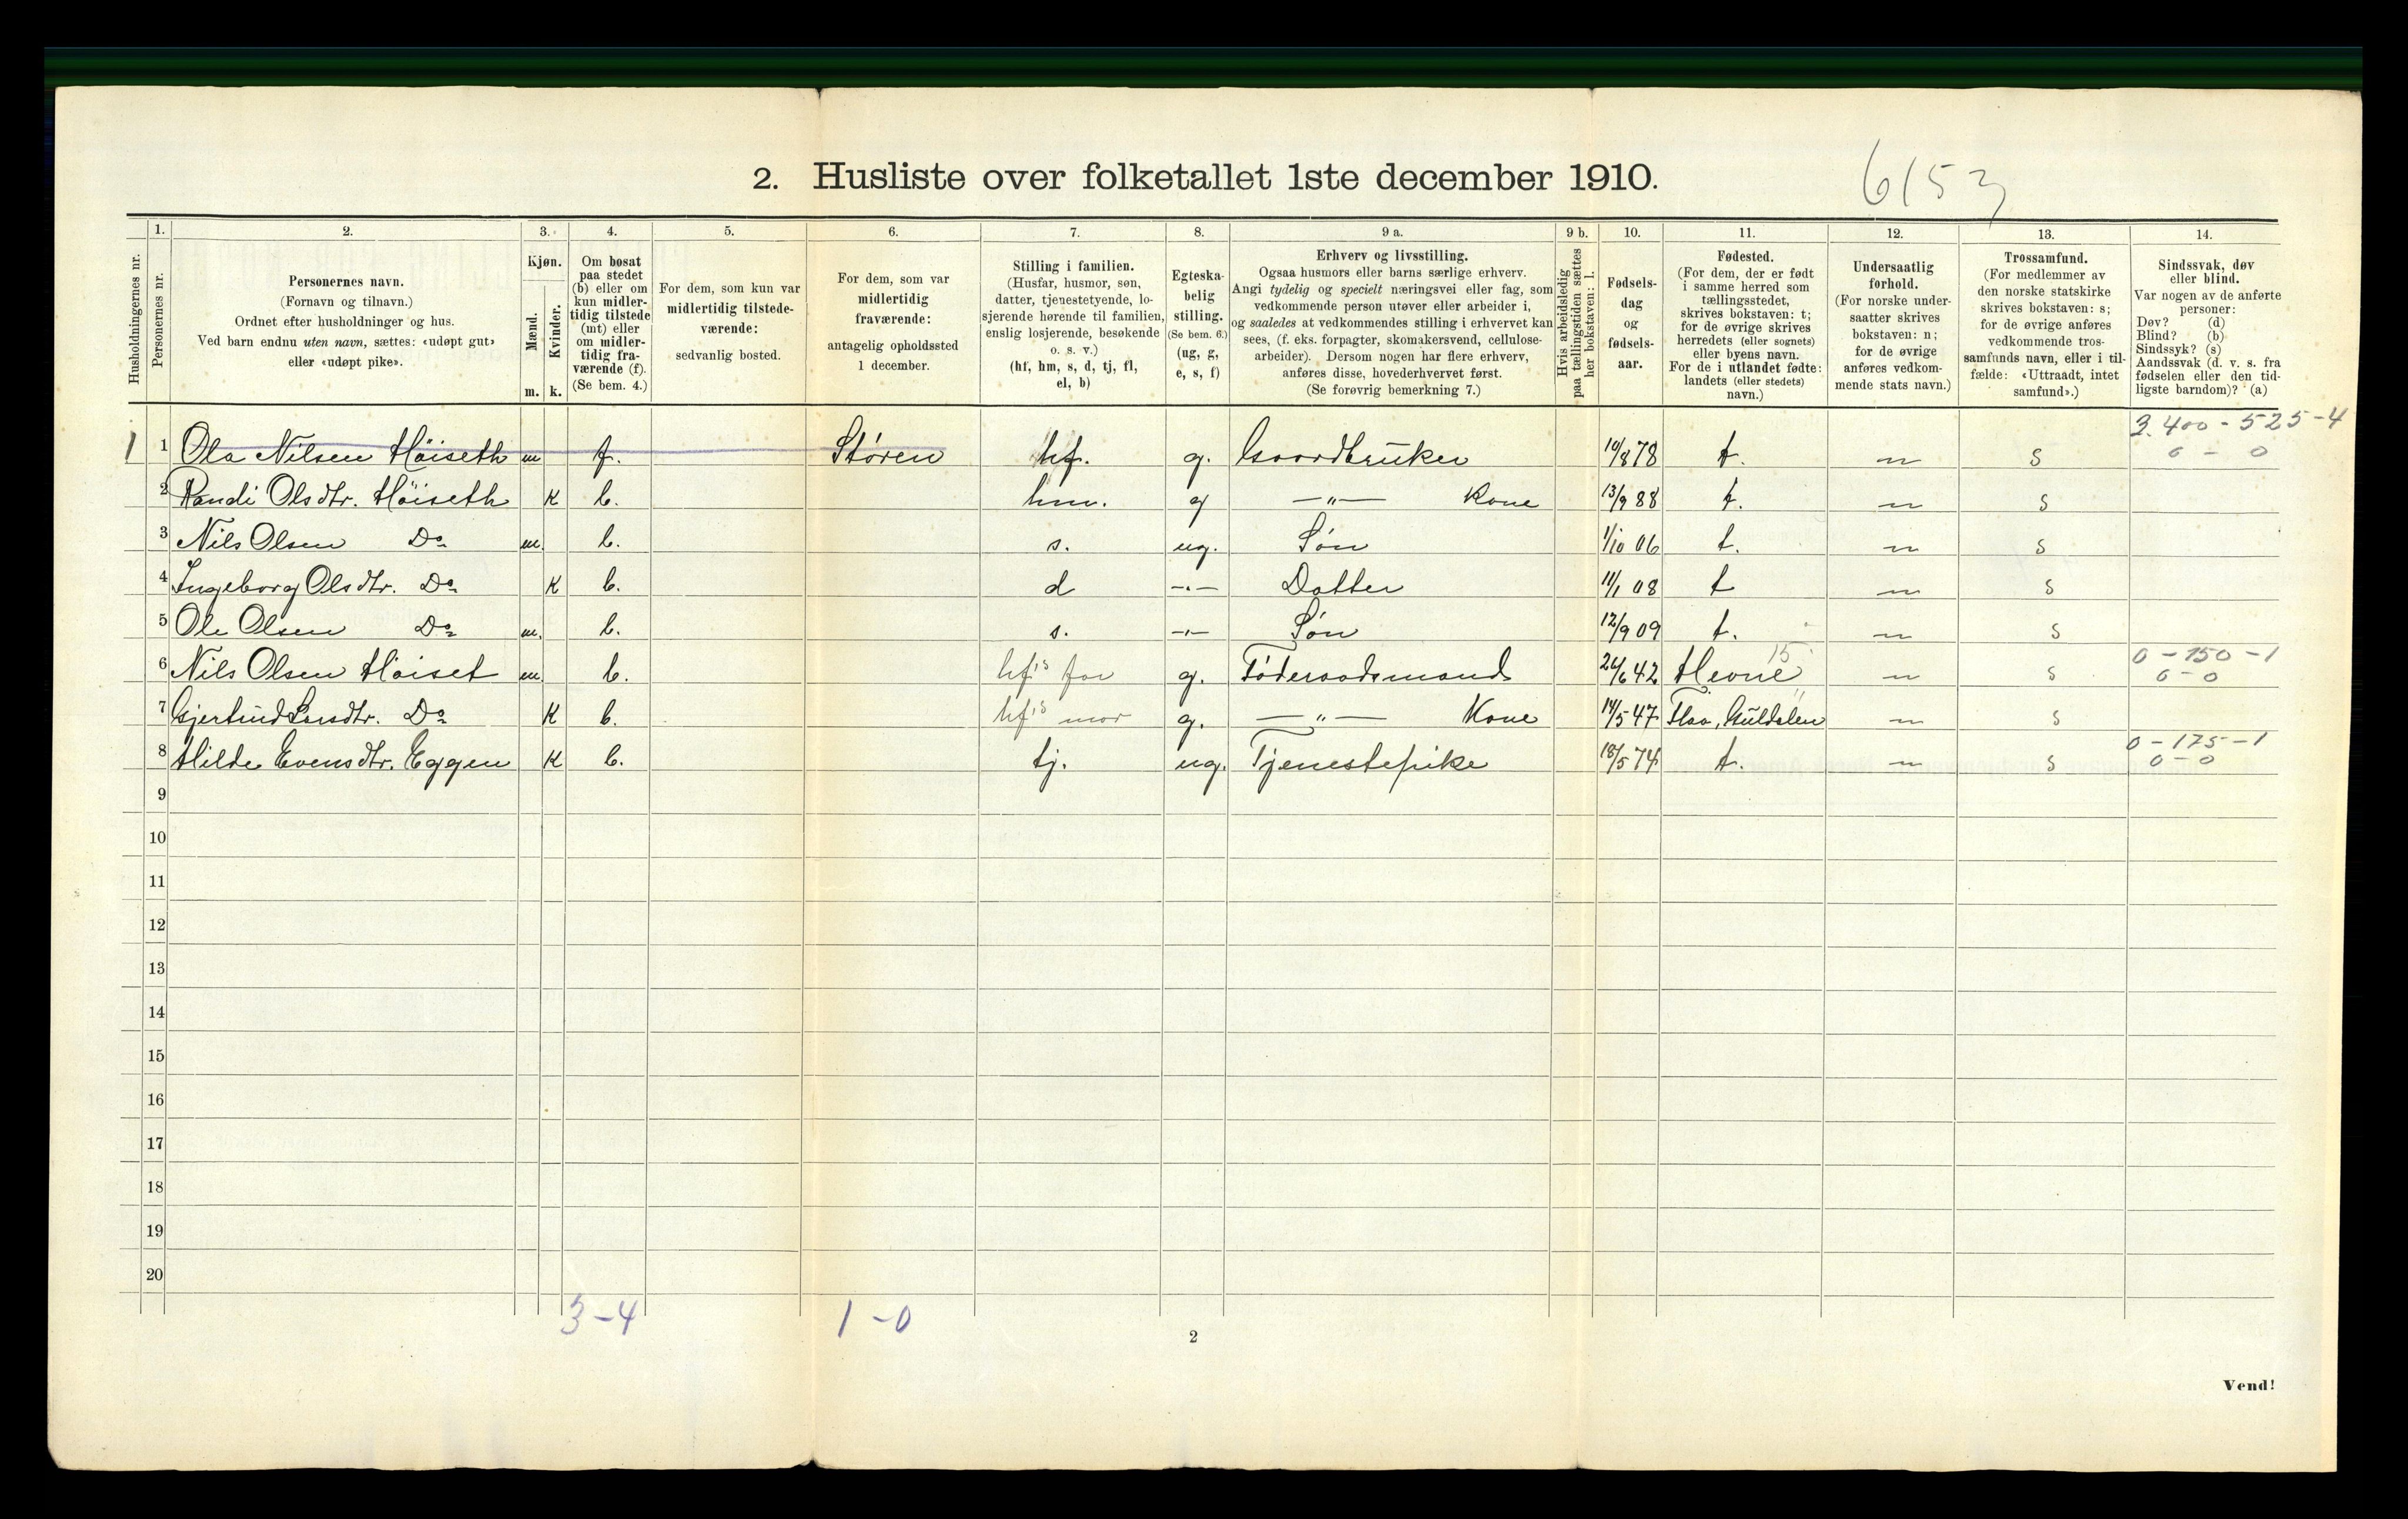 2. Husliste over folketallet 1ste december 1910.
6153
Husholdningernes nr.
1.
Personernes nr.
2.
Personernes navn.
(Fornavn og tilnavn.)
Ordnet efter husholdninger og hus.
Ved barn endnu uten navn, sættes: «udøpt gut»
eller «udøpt pike».
3.
Kjøn.
Mænd.
Kvinder.
m. k.
4.
Om bosat
paa stedet
(b) eller om
kun midler-
tidig tilstede
(mt) eller
om midler-
tidig fra-
værende (f).
(Se bem. 4.)
5.
For dem, som kun var
midlertidig tilstede-
værende:
sedvanlig bosted.
6.
For dem, som var
midlertidig
fraværende:
antagelig opholdssted
1 december.
7.
Stilling i familien.
(Husfar, husmor, søn,
datter, tjenestetyende, lo-
sjerende hørende til familien,
enslig losjerende, besøkende
o. s. v.)
(hf, hm, s, d, tj, fl,
el, b)
8.
Egteska-
belig
stilling.
(Se bem. 6.)
(ug, g,
e, s, f)
9 a.
Erhverv og livsstilling.
Ogsaa husmors eller barns særlige erhverv.
Angi tydelig og specielt næringsvei eller fag, som
vedkommende person utøver eller arbeider i,
og saaledes at vedkommendes stilling i erhvervet kan
sees, (f. eks. forpagter, skomakersvend, cellulose-
arbeider). Dersom nogen har flere erhverv,
anføres disse, hovederhvervet først.
(Se forøvrig bemerkning 7.)
9 b.
Hvis arbeidsledig
paa tællingstiden sættes
her bokstaven: l.
10.
Fødsels-
dag
og
fødsels-
aar.
11.
Fødested.
(For dem, der er født
i samme herred som
tællingsstedet,
skrives bokstaven: t;
for de øvrige skrives
herredets (eller sognets)
eller byens navn.
For de i utlandet fødte:
landets (eller stedets)
navn.)
12.
Undersaatlig
forhold.
(For norske under-
saatter skrives
bokstaven: n;
for de øvrige
anføres vedkom-
mende stats navn.)
13.
Trossamfund.
(For medlemmer av
den norske statskirke
skrives bokstaven: s;
for de øvrige anføres
vedkommende tros-
samfunds navn, eller i til-
fælde: «Uttraadt, intet
samfund».)
14.
Sindssvak, døv
eller blind.
Var nogen av de anførte
personer:
Døv? (d)
Blind? (b)
Sindssyk? (s)
Aandssvak (d. v. s. fra
fødselen eller den tid-
ligste barndom)? (a)
3.400 - 525 - 4
1 1 Ola Nilsen Höiseth m f. Støren hf. g. Gaardbruker 10/8 78 t. n s 0 - 0
2 Randi Olsdtr. Höiseth K b. hm. g —"— Kone 13/9 88 t. n s
3 Nils Olsen Do m. b. s. ug. Søn 1/10 06 t. n s
4 Ingeborg Olsdtr. Do K b. d -"- Datter 11/1 08 t n s
5 Ole Olsen Do m. b. s. -"- Søn 12/9 09 t. n s
15 0 - 150 - 1
6 Nils Olsen Höiset m. b. hf's far g. Föderaadsmand 26/6 42 Hevne n s 0 - 0
7 Gjertrud Larsdtr. Do K b. hf's mor g. —"— Kone 14/5 47 Flaa, Guldalen n s
0 - 175 - 1
8 Hilde Evensdtr. Eggen K b. tj. ug. Tjenestepike 18/5 74 t. n s 0 - 0
9
10
11
12
13
14
15
16
17
18
19
20
3 - 4 1 - 0
2
Vend!